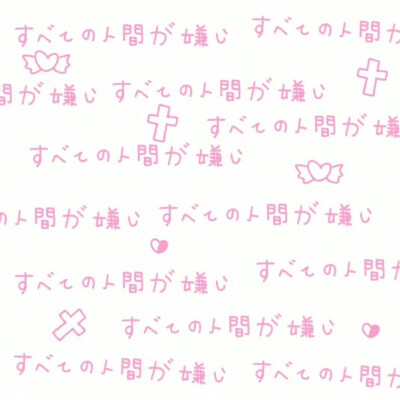 すべての人間が嫌い すべての人間
間が嫌い すべての人間が嫌い
すべての人間が嫌
すべての人間が嫌い
の人間が嫌い すべての人間が嫌い
すべての人間が嫌い すべての人間
すべての人間が嫌い
すべての人間が嫌い すべての人間